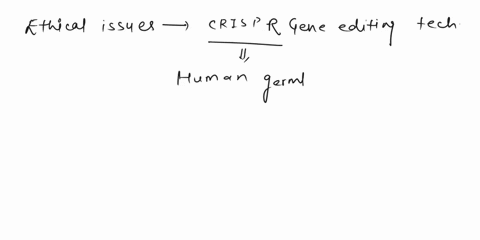 Ethical issues → CRISPR Gene editing tech
⇓
Human germl